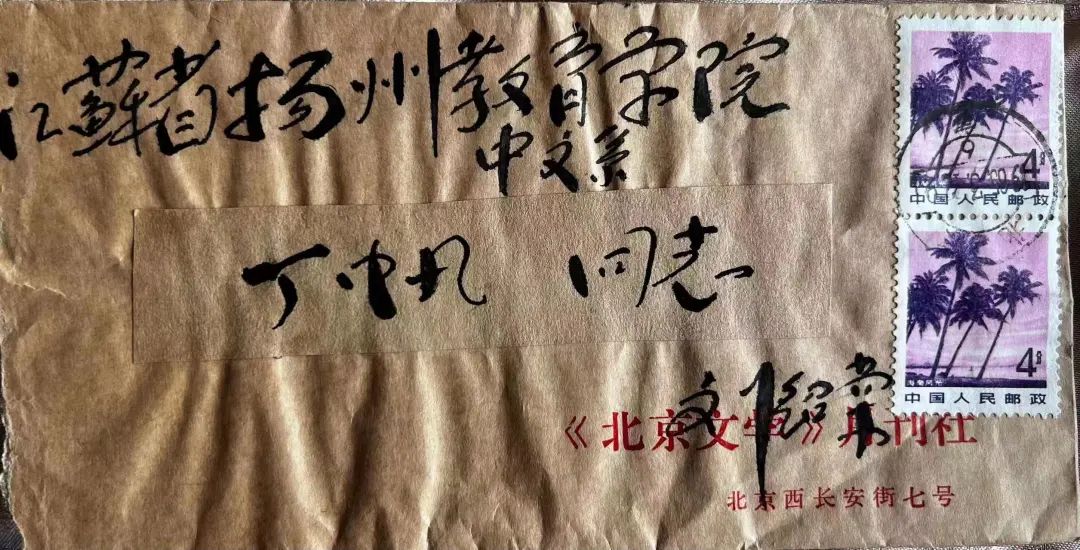 江蘇省扬州教育学院
中文系
丁帆 同志
刘绍棠
《北京文学》月刊社
北京西长安街七号
4分
中国人民邮政
4分
中国人民邮政